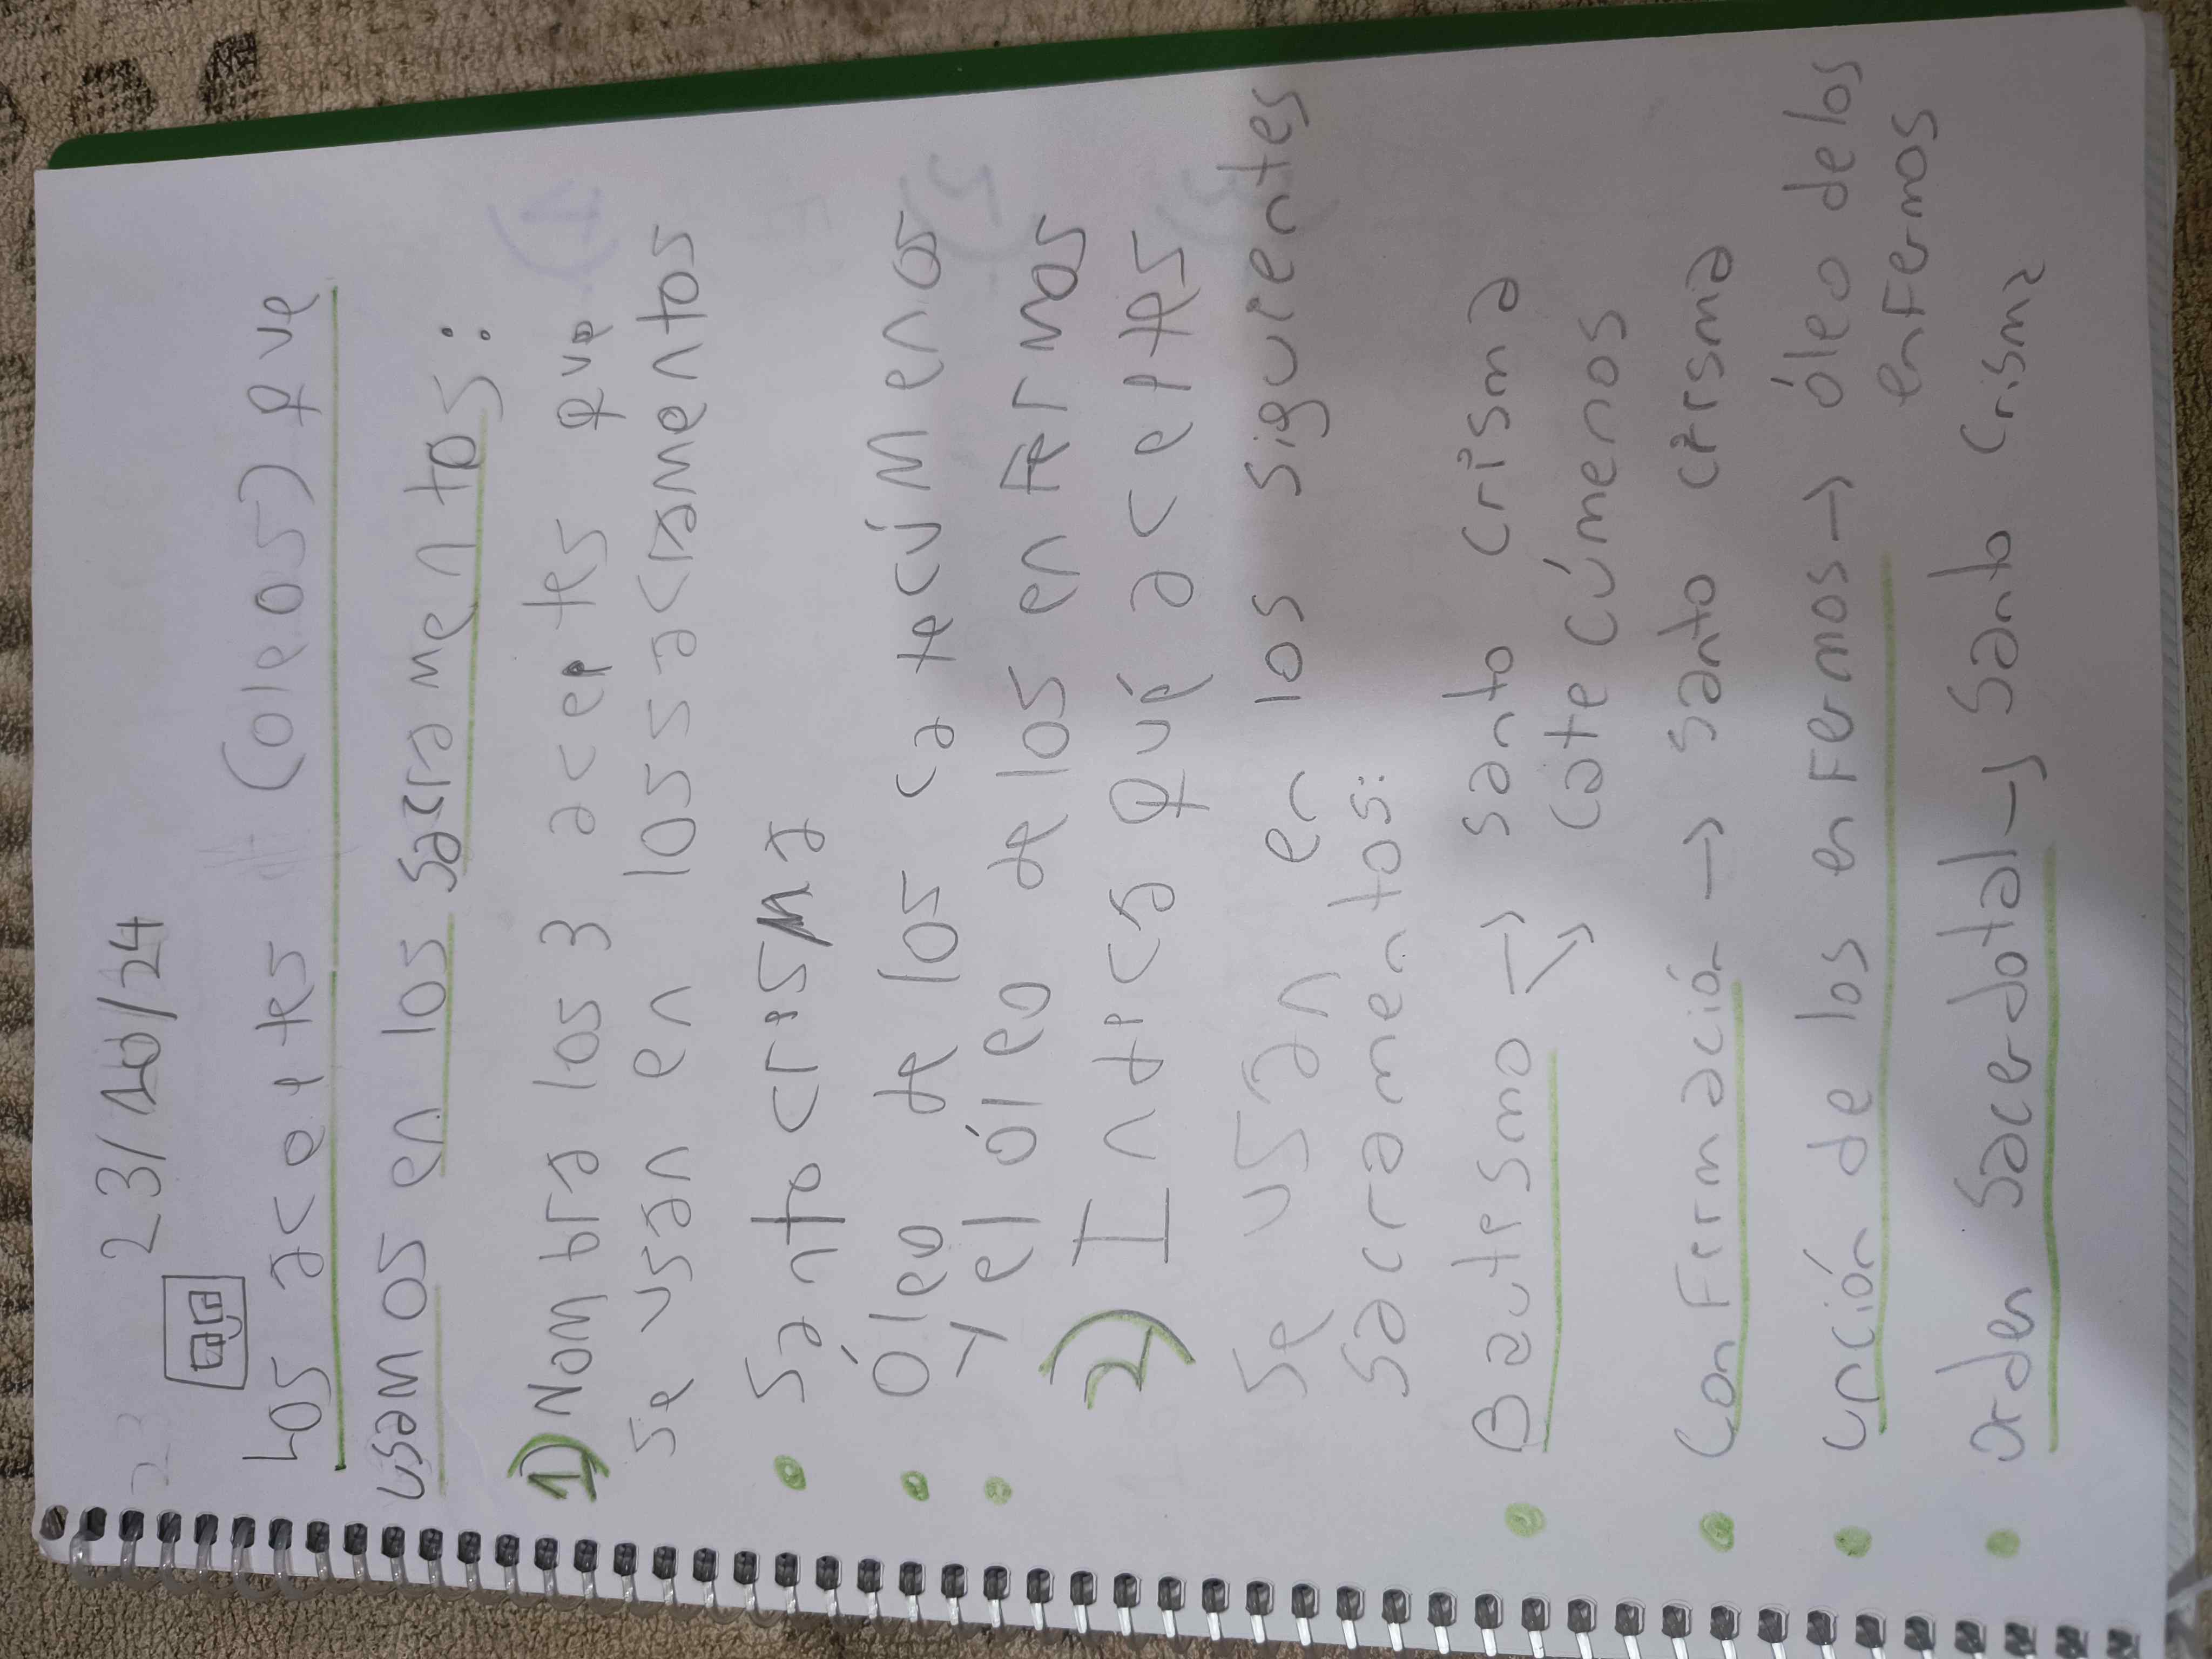 23/10/24
los aceites (oleos) que
usamos en los sacramentos:
1) Nombra los 3 aceites que
se usan en los sacramentos
Santo crisma
Óleo de los catecúmenos
y el óleo de los enfermos
2) Indica qué aceites
se usan en los siguientes
sacramentos:
Bautismo → Santo crisma
→ catecúmenos
Confirmación → santo crisma
unción de los enfermos → óleo de los
enfermos
orden sacerdotal → santo crisma